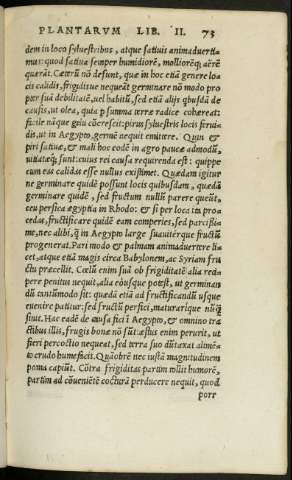 PLANTARVM LIB. II. 73
dem in loco syluestribus, atque satiuis animaduertia
mus: quod satiua semper humidiorē, mollioréq; aërē
quærāt. Cæterū nō desunt, quæ in hoc etiā genere lo
cis calidis, frigidisue nequeāt germinare nō modo pro
pter suā debilitatē, uel habitū, sed etiā alijs qbusdā de
causis, ut olea, quia p summa terræ radice cohæreat:
facile náque gelu cōcrescit: pirus syluestris locis feruia
dis, ut in Aegypto, germē nequit emittere. Quin &
piri satiuæ, & mali hoc eodē in agro paucæ admodū,
uitiatæq; sunt: cuius rei causa requirenda est: quippe
cum eas calidas esse nullus existimet. Quædam igitur
ne germinare quidē possunt locis quibusdam, quædā
germinare quidē, sed fructum nullū parere queūt,
ceu persica ægyptia in Rhodo: & si per loca ita pro
cedas, fructificare quidē eam comperies, sed parcissia
me, nec alibi, q̄ in Aegypto large suauitérque fructū
progenerat. Pari modo & palmam animaduertere lia
cet, atque etiā magis circa Babylonem, ac Syriam fru
ctu præcellit. Cœlū enim suā ob frigiditatē alia redi
pere penitus nequit, alia eòusque potest, ut germinan
dū tantūmodo sit: quædā etiā ad fructificandū usque
euenire patitur: sed fructū perfici, maturarique nūq̄
siuit. Hac eadē de causa fieri ī Aegypto, & omnino tra
ctibus illis, frugis bonæ nō sūt æstus enim perurit, ut
fieri percoctio nequeat, sed terra suo dūtaxat alimēa
to crudo humeficit. Quāobrē nec iustā magnitudinem
poma capiūt. Cōtra frigiditas partim tollit humorē,
partim ad cōueniētē cocturā perducere nequit, quod
porr